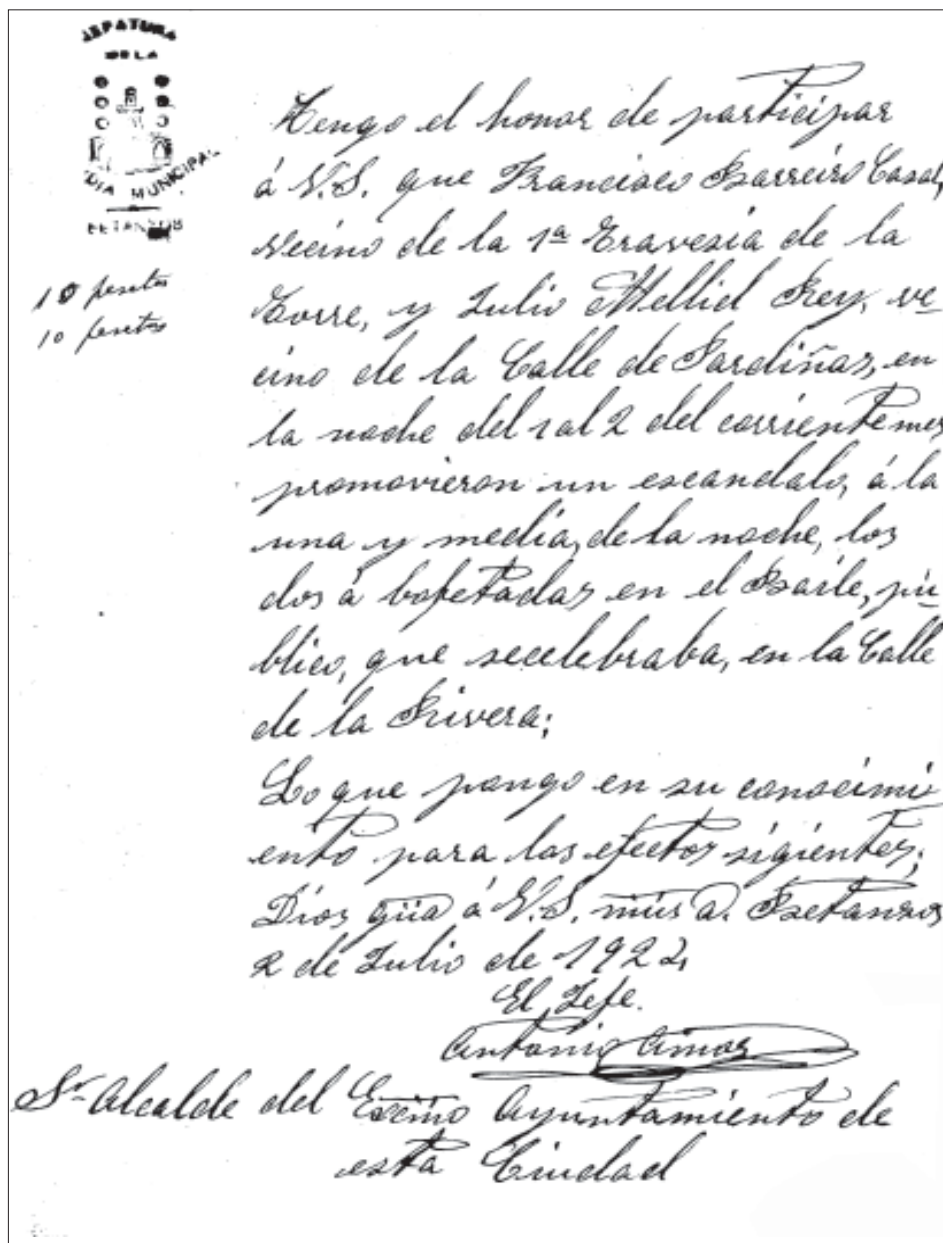 JEFATURA
DE LA
DIA MUNICIPAL
BETANZOS
10 pesetas
10 pesetas
Tengo el honor de participar
á V.S. que Francisco Barreiro Casal,
vecino de la 1ª Travesia de la
Torre, y Julio Mellid Rey, ve-
cino de la Calle de Pardiñas, en
la noche del 1 al 2 del corriente mes,
promovieron un escandalo, á la
una y media, de la noche, los
dos á bofetadas en el Baile, pú-
blico, que secelebraba, en la Calle
de la Rivera;
Lo que pongo en su conocimi
ento para los efectos sigientes;
Dios güa á V.S. mús a. Betanzos
2 de Julio de 1922,
El Jefe.
Antonio Amor
Sr Alcalde del Excmo Ayuntamiento de
esta Ciudad